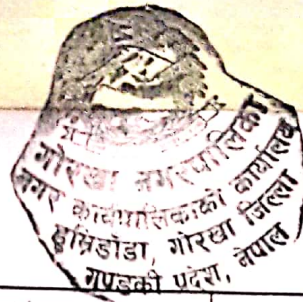 गोरखा नगरपालिका
नगर कार्यपालिकाको कार्यालय
हुमिडाँडा, गोरखा जिल्ला
गण्डकी प्रदेश, नेपाल